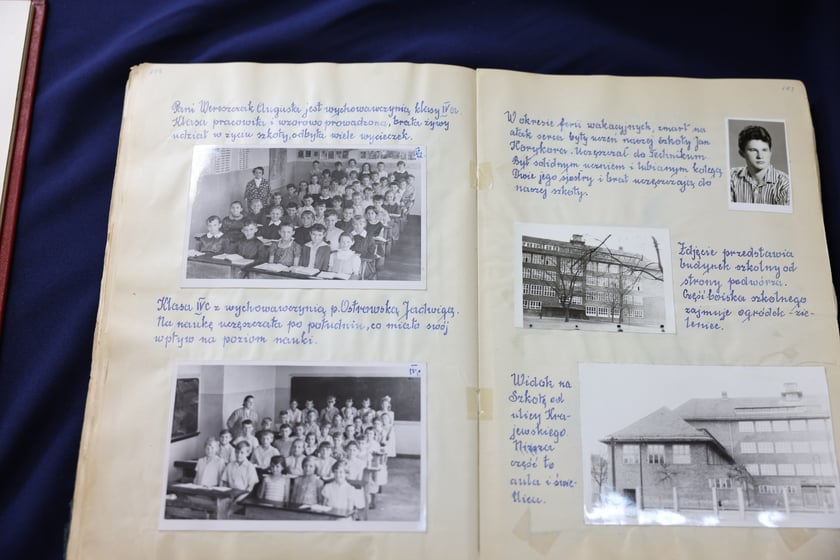 Pani Wereszczak Augusta jest wychowawczynią klasy IV a.
Klasa pracowita i wzorowo prowadzona, brała żywy
udział w życiu szkoły, odbyła wiele wycieczek.
IVa
Klasa IVc z wychowawczynią p. Ostrowską Jadwigą.
Na naukę uczęszczała po południu, co miało swój
wpływ na poziom nauki.
IVc
W okresie ferii wakacyjnych, zmarł na
atak serca były uczeń naszej szkoły Jan
Korykora. Uczęszczał do Technikum.
Był solidnym uczniem i lubianym kolegą.
Dwie jego siostry i brat uczęszczają do
naszej szkoły.
Zdjęcie przedstawia
budynek szkolny od
strony podwórza.
Część boiska szkolnego
zajmuje ogródek-zie-
leniec.
Widok na
Szkołę od
ulicy Kra-
jewskiego.
Niższa
część to
aula i świe-
tlica.